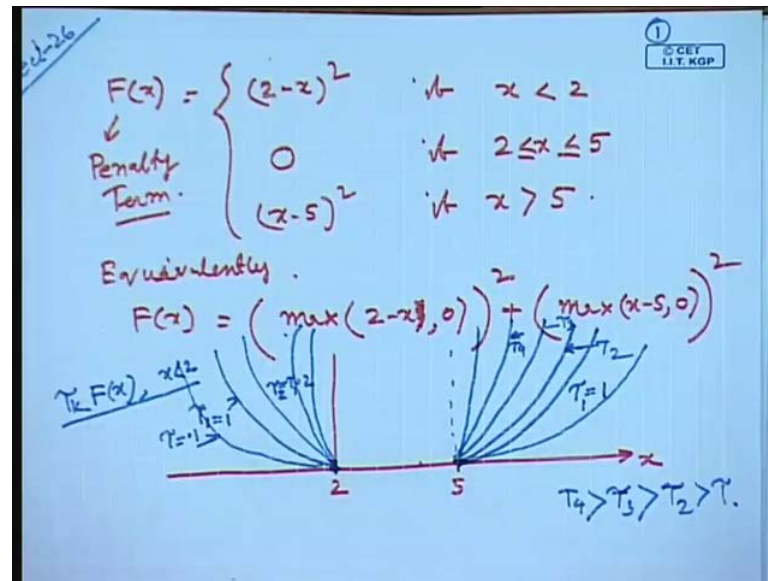 ect-26
①
© CET
I.I.T. KGP
F(x) = { (2-x)² if x < 2
0 if 2 ≤ x ≤ 5
(x-5)² if x > 5.
↓
Penalty
Term.
Equivalently.
F(x) = (max(2-x, 0))² + (max(x-5, 0))²
τₖ F(x), x<2
τ=.1
τ₁=1
τ₂=2
τ₄
τ₃
τ₂
τ₁=1
2 5 x
τ₄ > τ₃ > τ₂ > τ.